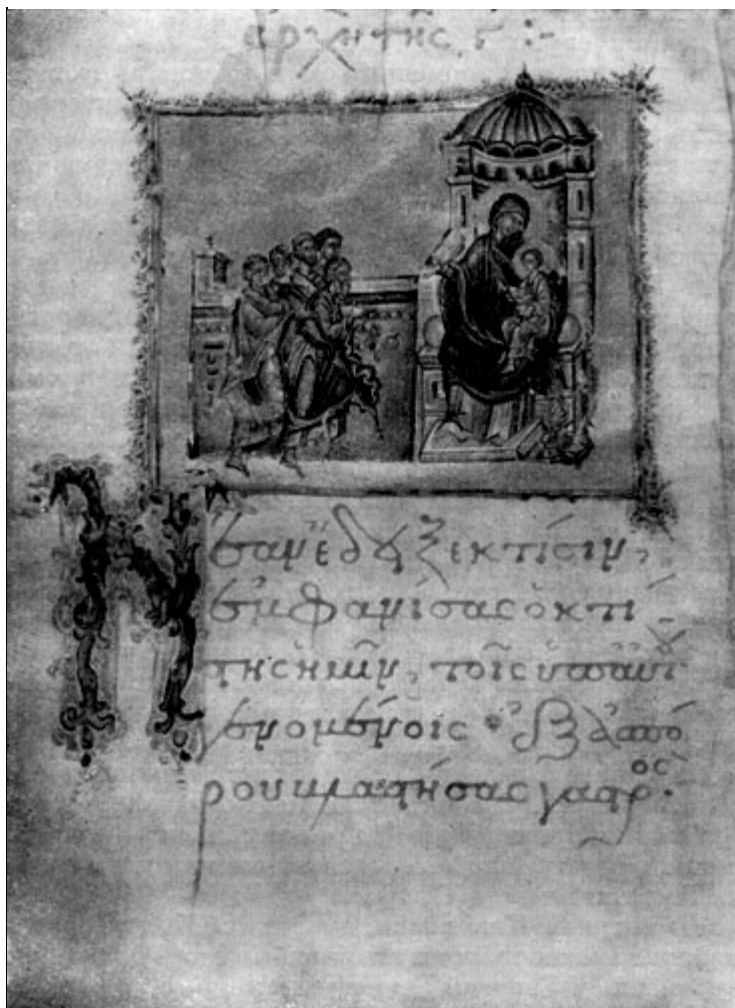 αρχητης. ϛ :-
Νέαν ἔδειξε κτίσιν,
ἐμφανίσας ὁ κτί-
της ἡμῖν, τοῖς ὑπ αὐτοῦ
γενομένοις · ἐξ ἀσπό
ρου βλαστήσας γαστρός ·